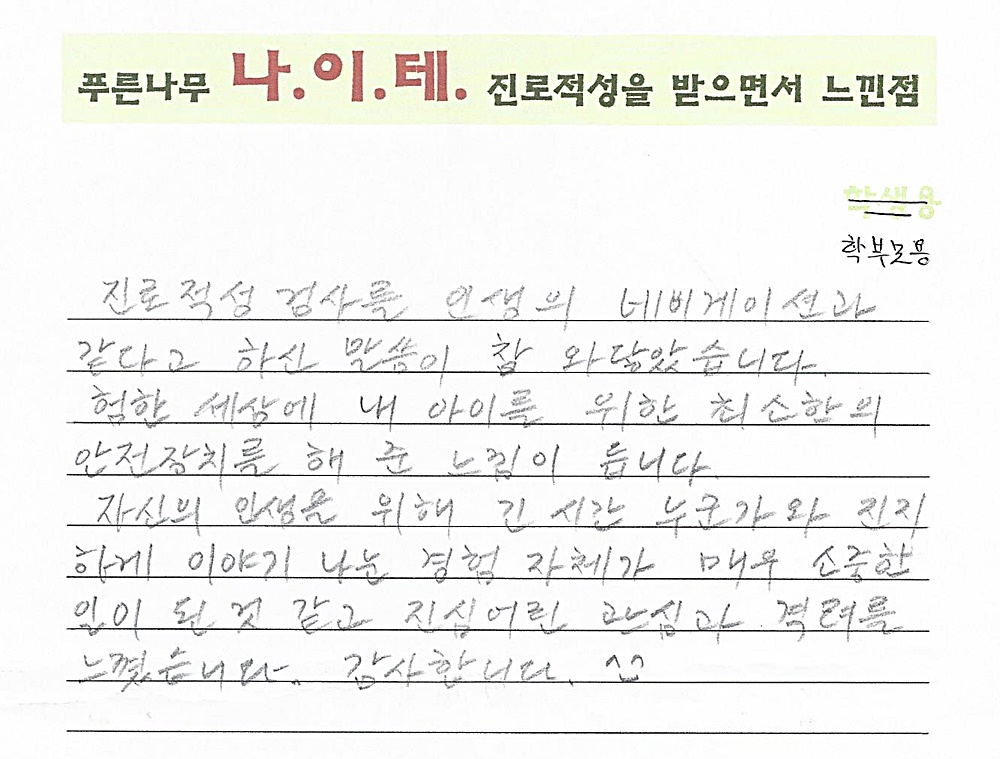 푸른나무 나.이.테. 진로적성을 받으면서 느낀점
학생용
학부모용
진로적성 검사를 인생의 네비게이션과
같다고 하신 말씀이 참 와닿았습니다.
험한 세상에 내 아이를 위한 최소한의
안전장치를 해 준 느낌이 듭니다.
자신의 인생을 위해 긴 시간 누군가와 진지
하게 이야기 나눈 경험 자체가 매우 소중한
일이 된 것 같고 진심어린 관심과 격려를
느꼈습니다. 감사합니다. ^^